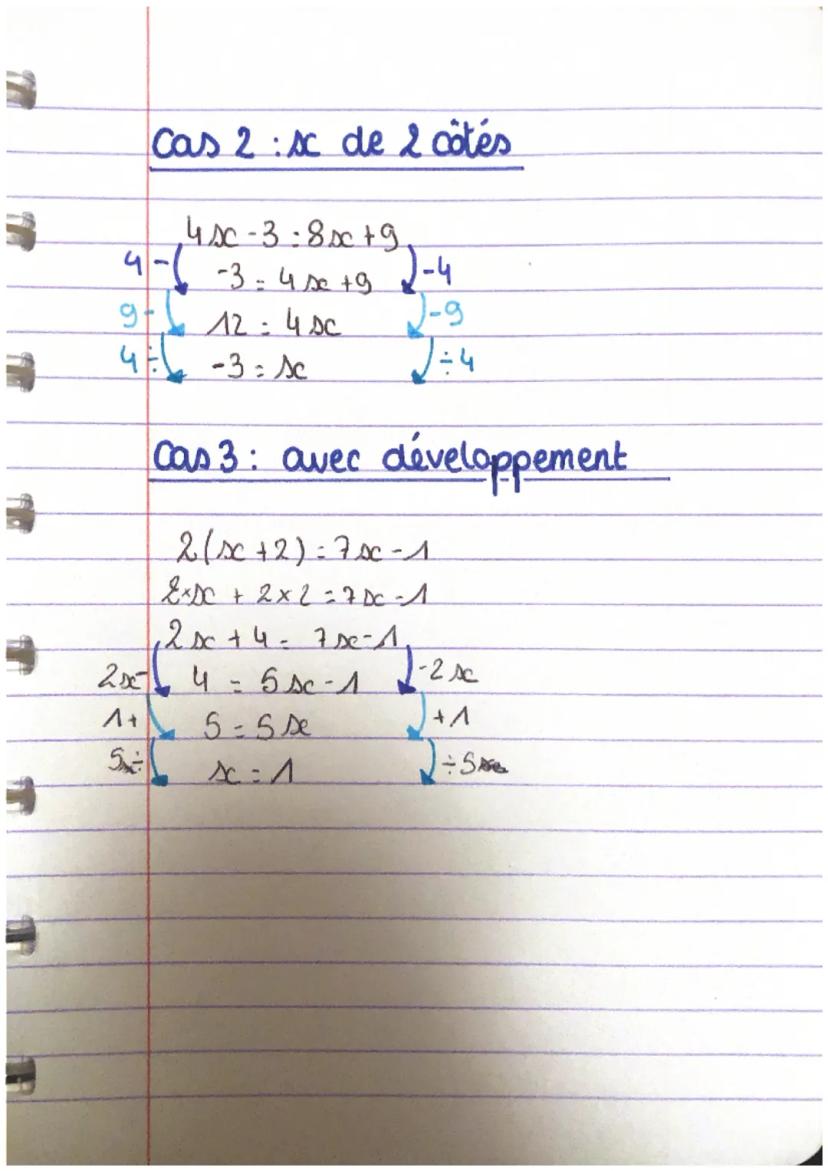 Cas 2 : x de 2 côtés
4x - 3 = 8x + 9
4 - -3 = 4x + 9 -4
9 - 12 = 4x -9
4 ÷ -3 = x ÷4
Cas 3 : avec développement
2(x + 2) = 7x - 1
2×x + 2×2 = 7x - 1
2x + 4 = 7x - 1
2x- 4 = 5x - 1 -2x
1+ 5 = 5x +1
5÷ x = 1 ÷5